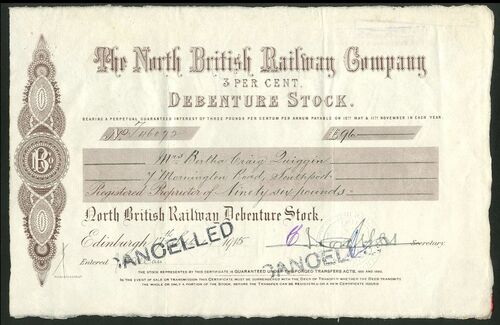 The North British Railway Company
3 PER CENT.
DEBENTURE STOCK.
BEARING A PERPETUAL GUARANTEED INTEREST OF THREE POUNDS PER CENTUM PER ANNUM PAYABLE ON 15TH MAY & 11TH NOVEMBER IN EACH YEAR.
£96
Mrs Bertha Craig Quiggin
7 Mornington Road, Southport
Registered Proprietor of Ninety six pounds
North British Railway Debenture Stock.
Edinburgh 1915
Secretary
Entered
CANCELLED
CANCELLED
THE STOCK REPRESENTED BY THIS CERTIFICATE IS GUARANTEED UNDER THE FORGED TRANSFERS ACTS, 1891 AND 1892.
IN THE EVENT OF SALE OR TRANSMISSION THIS CERTIFICATE MUST BE SURRENDERED WITH THE DEED OF TRANSFER WHETHER THE DEED TRANSMITS
THE WHOLE OR ONLY A PORTION OF THE STOCK, BEFORE THE TRANSFER CAN BE REGISTERED OR A NEW CERTIFICATE ISSUED